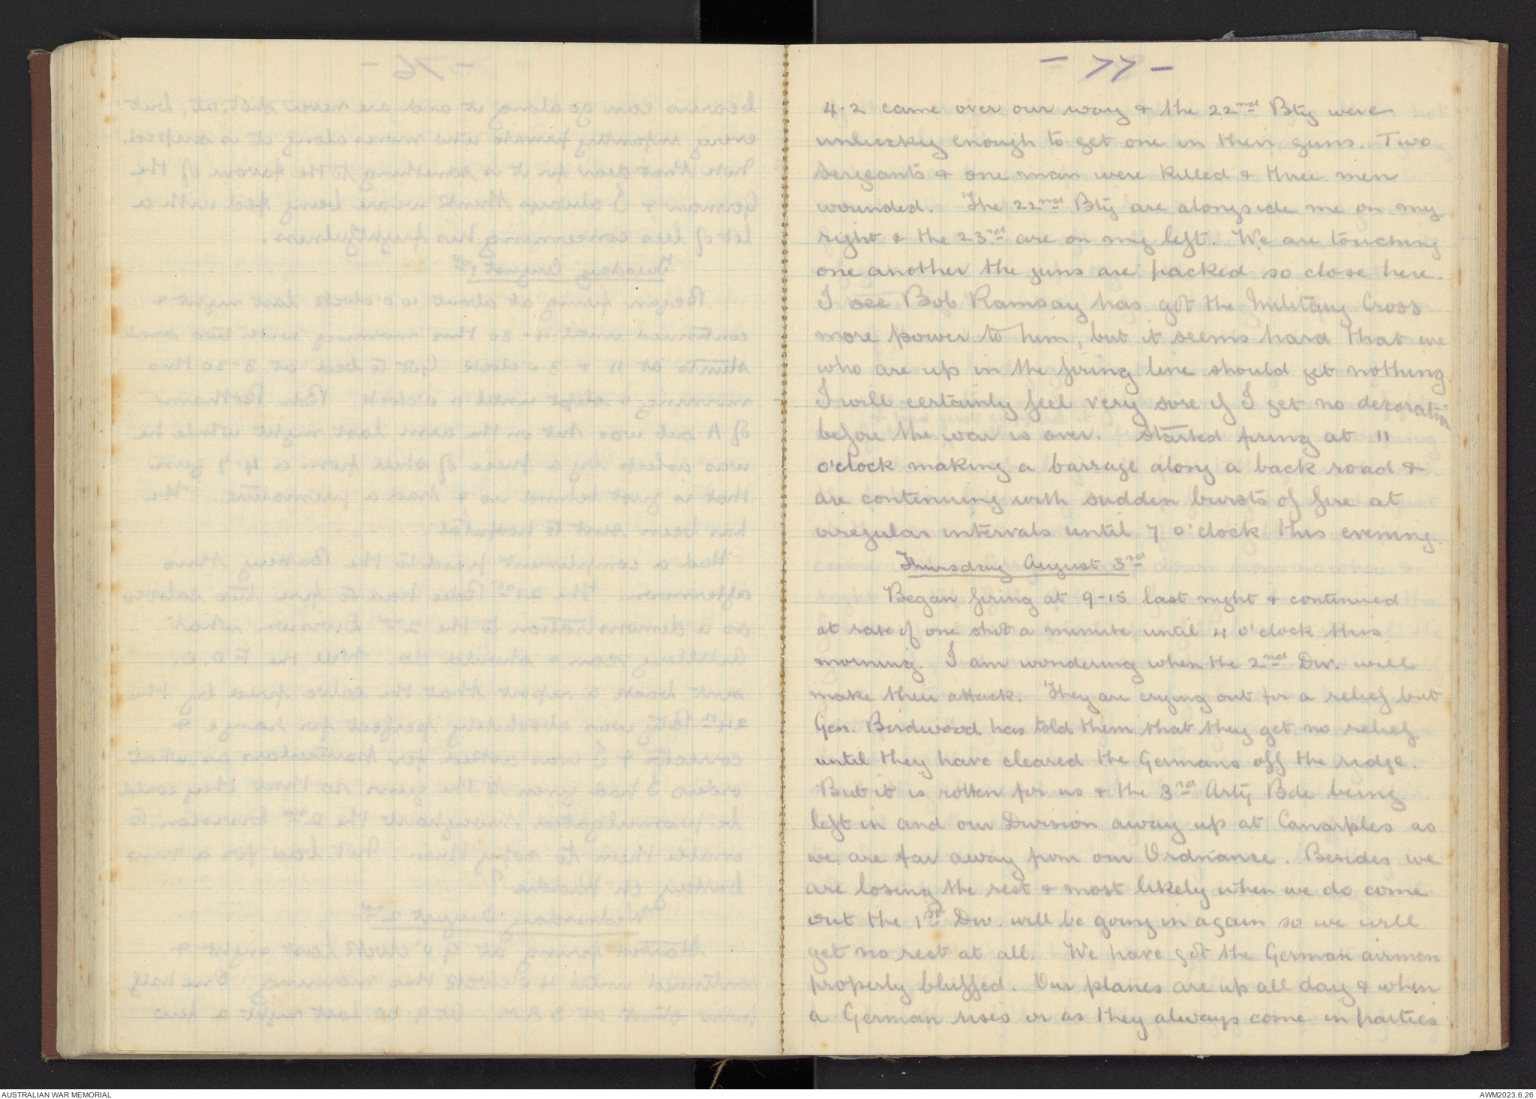 - 77 -
4.2 came over our way & the 22nd Bty were
unlucky enough to get one in their guns. Two
Sergeants & one man were killed & three men
wounded. The 22nd Bty are alongside me on my
right & the 23rd are on my left. We are touching
one another the guns are packed so close here.
I see Bob Ramsay has got the Military Cross
more power to him, but it seems hard that we
who are up in the firing line should get nothing.
I will certainly feel very sore if I get no decoration
before the war is over. Started firing at 11
o'clock making a barrage along a back road &
are continuing with sudden bursts of fire at
irregular intervals until 7 o'clock this evening.
Thursday August 3rd
Began firing at 9-15 last night & continued
at rate of one shot a minute until 4 o'clock this
morning. I am wondering when the 2nd Div. will
make their attack. They are crying out for a relief but
Gen. Birdwood has told them that they get no relief
until they have cleared the Germans off the ridge.
But it is rotten for us & the 3rd Arty Bde being
left in and our Division away up at Canaples as
we are far away from our Ordnance. Besides we
are losing the rest & most likely when we do come
out the 1st Div. will be going in again so we will
get no rest at all. We have got the German airmen
properly bluffed. Our planes are up all day & when
a German rises or as they always come in parties
AUSTRALIAN WAR MEMORIAL
AWM2023.6.26